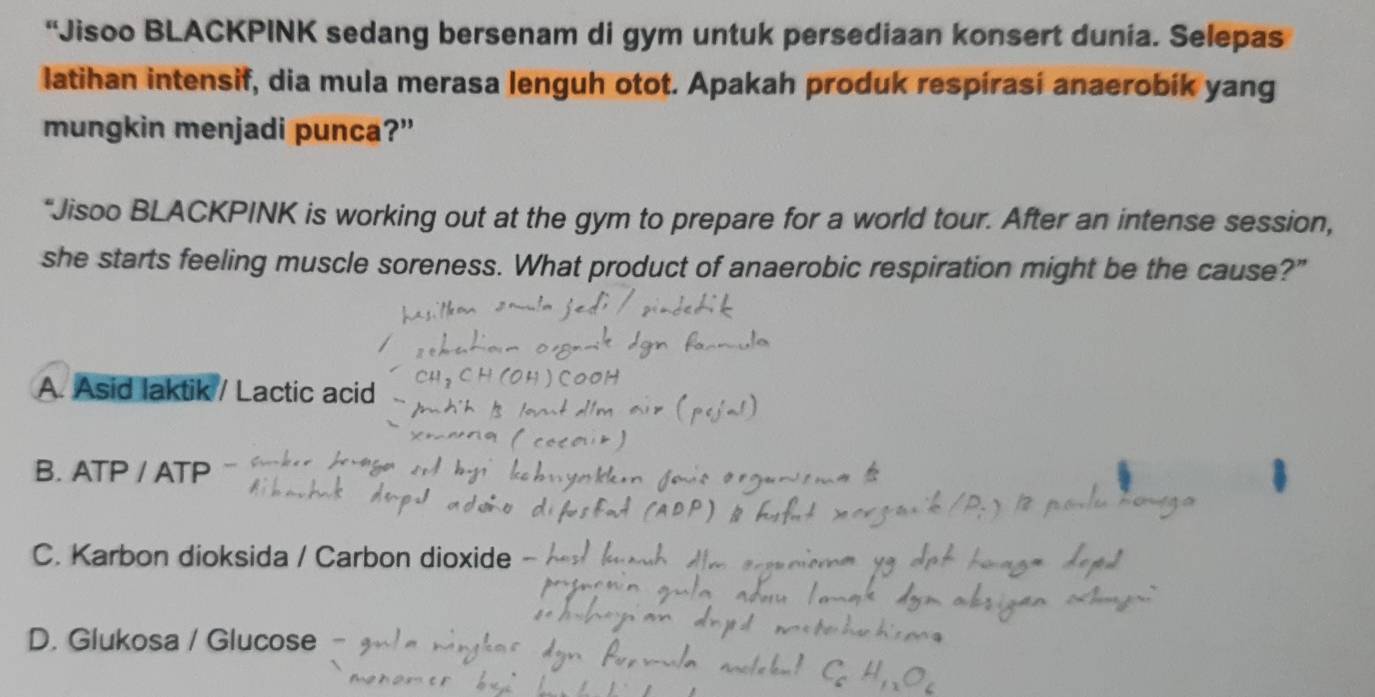 “Jisoo BLACKPINK sedang bersenam di gym untuk persediaan konsert dunia. Selepas
latihan intensif, dia mula merasa lenguh otot. Apakah produk respirasi anaerobik yang
mungkin menjadi punca?”
“Jisoo BLACKPINK is working out at the gym to prepare for a world tour. After an intense session,
she starts feeling muscle soreness. What product of anaerobic respiration might be the cause?”
hasilkan semula jadi / sintetik
sebatian organik dgn formula
CH3CH(OH)COOH
A. Asid laktik / Lactic acid
putih & larut dlm air (pejal)
xwarna (cecair)
B. ATP / ATP - sumber tenaga bagi kebanyakkan jenis organisma &
dibentuk drpd adino difosfat (ADP) & fosfat xorganik (Pi) & perlu tenaga
C. Karbon dioksida / Carbon dioxide - hasil kumuh dlm organisma yg dpt tenaga drpd
gula atau lemak dgn oksigen
sebahagian drpd metabolisma
D. Glukosa / Glucose - gula ringkas dgn formula molekul C6H12O6
monomer bagi